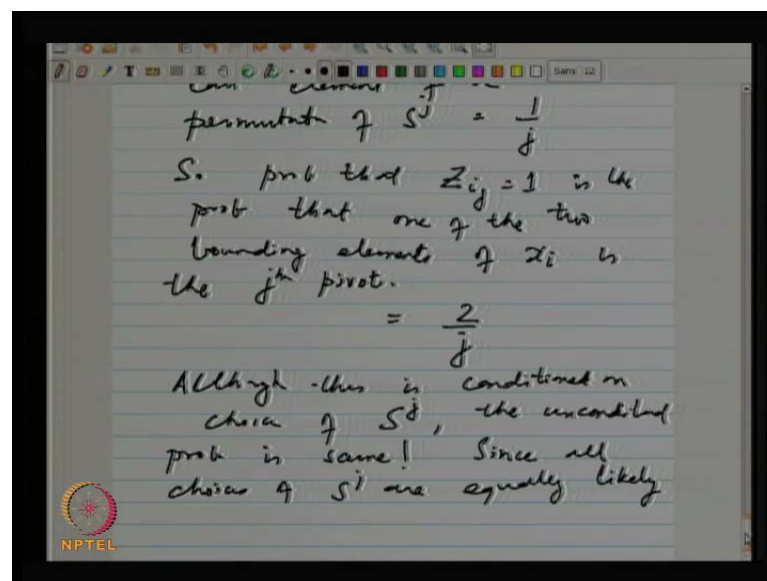 Sans 12
element
permutatn of S^j = 1/j
So prob that Z_ij = 1 is the
prob that one of the two
bounding elements of x_i is
the j^th pivot.
= 2/j
Although this is conditioned on
choice of S^j, the
prob is same! Since all
choices of S^j are equally likely
NPTEL